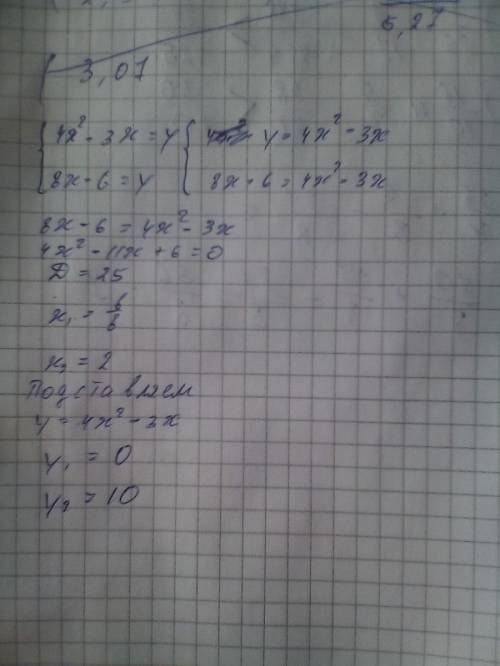 5,27
3,07
4x² - 3x = y y = 4x² - 3x
8x - 6 = y 8x - 6 = 4x² - 3x
8x - 6 = 4x² - 3x
4x² - 11x + 6 = 0
D = 25
x₁ = 6/8
x₂ = 2
Подставляем
y = 4x² - 3x
y₁ = 0
y₂ = 10